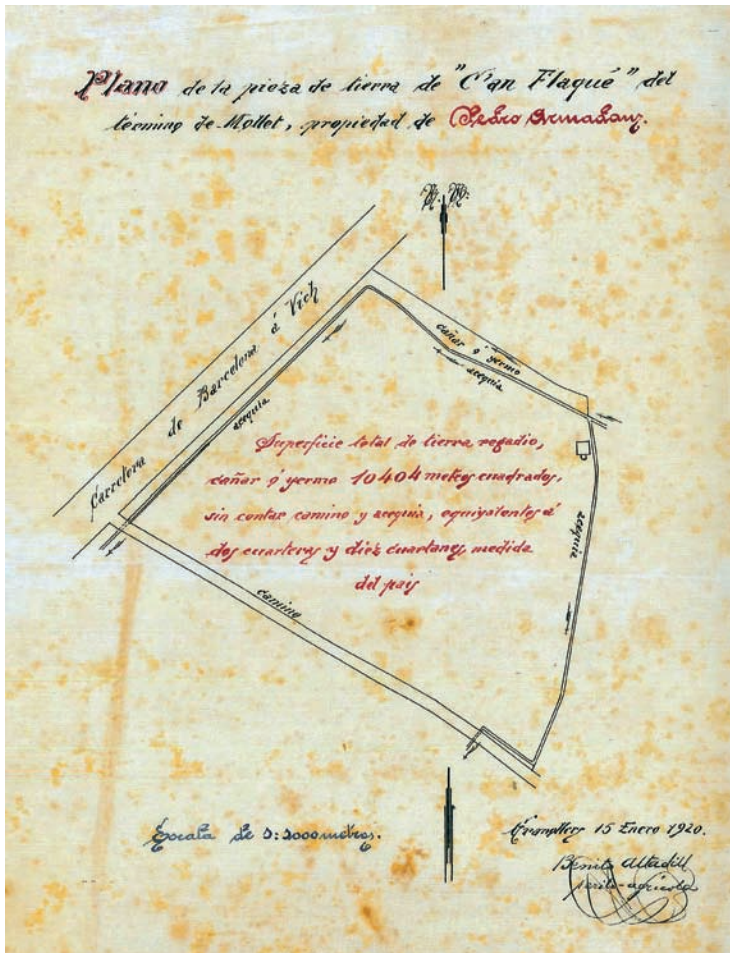 Plano de la pieza de tierra de "C'an Flaqué" del
término de Mollet, propiedad de Pedro Armadans.
N. M.
Carretera de Barcelona á Vich
acequia
cañar ó yermo
acequia
Superficie total de tierra regadio,
cañar ó yermo 10404 metros cuadrados,
sin contar camino y acequia, equivalentes á
dos cuarteras y diez cuartanes medida
del país
acequia
camino
Escala de 1:1000 metros.
Granollers 15 Enero 1920.
Benito Altadill
perito-agrícola